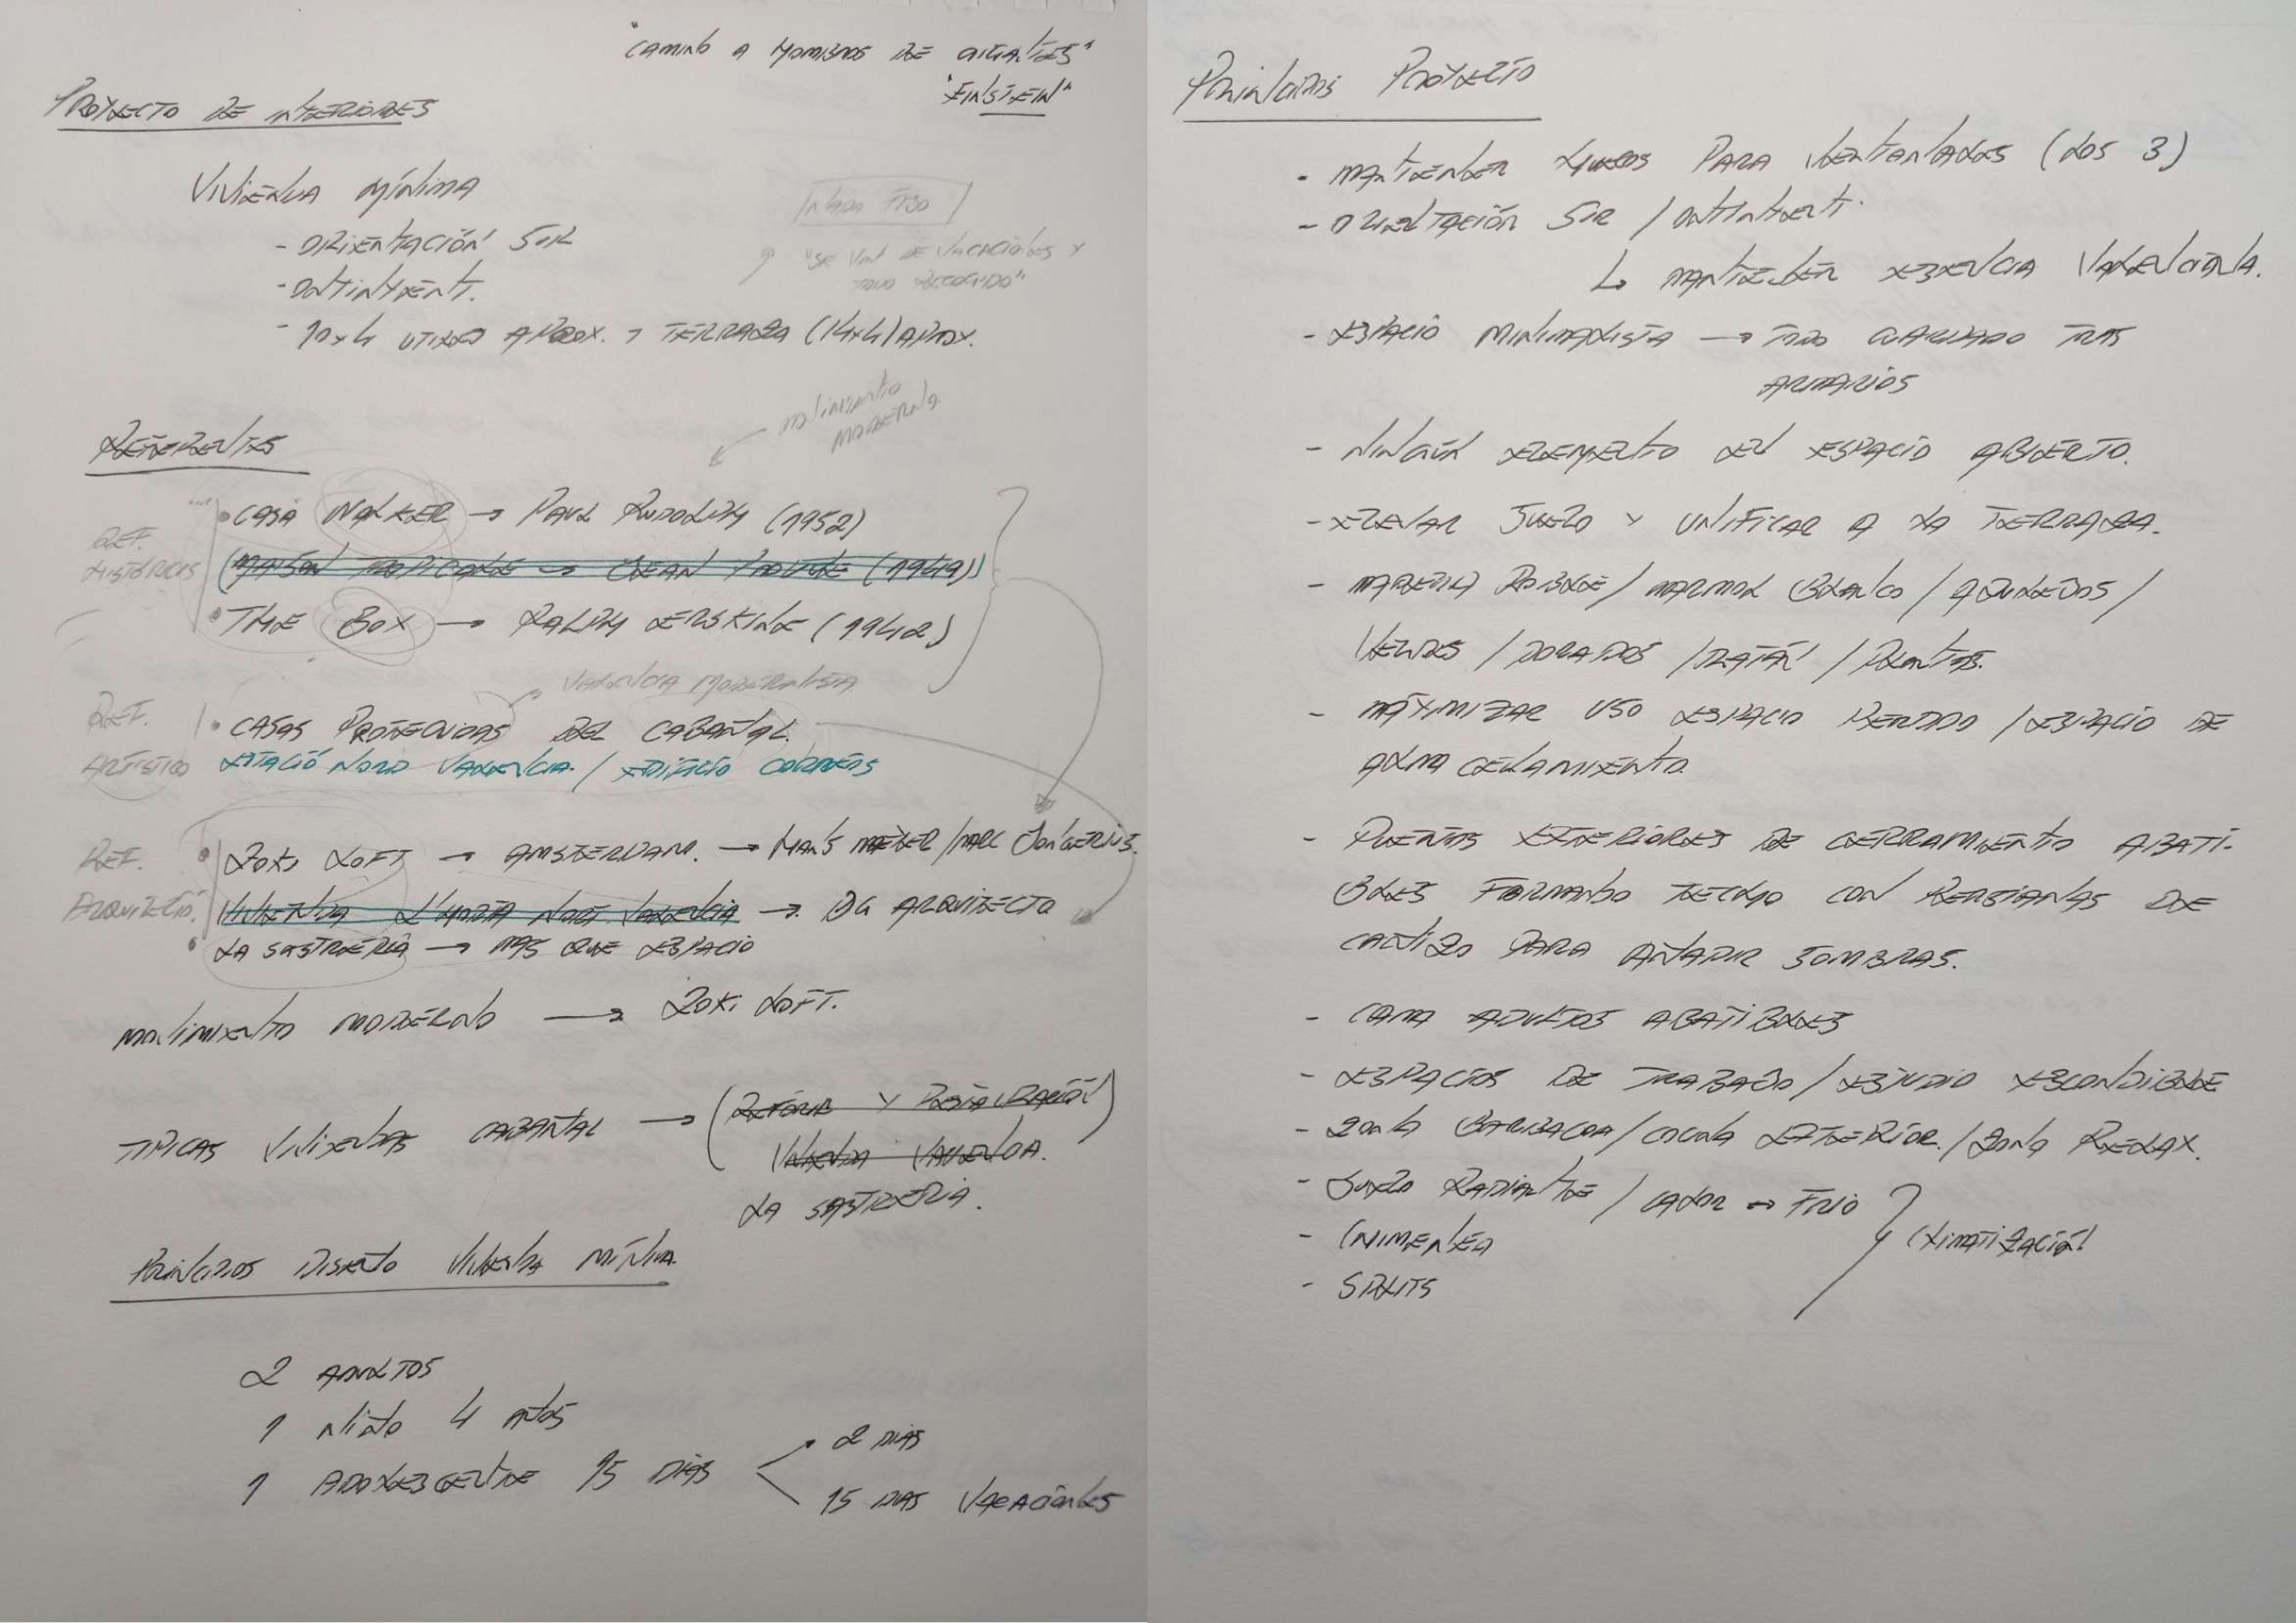 "CAMINO A HOMBROS DE GIGANTES"
"EINSTEIN"
PROYECTO DE INTERIORES
VIVIENDA MÍNIMA
- ORIENTACIÓN SUR
- ONTINYENT.
- 10x4 UTILES APROX. > TERRAZA (14x4) APROX.
NADA FIJO
"SE VAN DE VACACIONES Y
TODO RECOGIDO"
MOVIMIENTO
MODERNO
REFERENTES
REF.
HISTÓRICOS
• CASA WALKER → PAUL RUDOLPH (1952)
(MAISON TROPICALE → JEAN PROUVE (1949))
• THE BOX → RALPH ERSKINE (1942)
VALENCIA MODERNISTA
REF.
ARTÍSTICO
• CASAS PROTEGIDAS DEL CABAÑAL.
ESTACIÓ NORD VALENCIA. / EDIFICIO CORREOS
REF.
ARQUITECTÓ.
• ZOKU LOFT → AMSTERDAM. → HANS MEYER / MARC JONGERIUS.
VIVIENDA L'HORTA NORT VALENCIA → DG ARQUITECTO
• LA SASTRERIA → MAS QUE ESPACIO
MOVIMIENTO MODERNO → ZOKU LOFT.
TIPICAS VIVIENDAS CABAÑAL → (REFORMA Y RESTAURACIÓN
VIVIENDA VALENCIA.)
LA SASTRERIA.
PRINCIPIOS DISEÑO VIVIENDA MÍNIMA.
2 ADULTOS
1 NIÑO 4 AÑOS
1 ADOLESCENTE 15 DIAS
2 DIAS
15 DIAS VACACIONES
PRINCIPIOS PROYECTO
- MANTENER HUECOS PARA VENTANALES (LOS 3)
- ORIENTACIÓN SUR / ONTINYENT.
↳ MANTENER ESENCIA VALENCIANA.
- ESPACIO MINIMALISTA → TODO GUARDADO TRAS
ARMARIOS
- NINGÚN ELEMENTO EN ESPACIO ABIERTO.
- ELEVAR SUELO Y UNIFICAR A LA TERRAZA.
- MADERA ROBLE / MARMOL BLANCO / AZULEJOS /
VERDES / DORADOS / RATÁN / PLANTAS.
- MÁXIMIZAR USO ESPACIO PERDIDO / ESPACIO DE
ALMACENAMIENTO.
- PUERTAS EXTERIORES DE CERRAMIENTO ABATI-
BLES FORMANDO TECHO CON PERSIANAS DE
CAÑIZO PARA AÑADIR SOMBRAS.
- CAMA ADULTOS ABATIBLES
- ESPACIOS DE TRABAJO / ESTUDIO ESCONDIBLE
- ZONA BARBACOA / COCINA EXTERIOR. / ZONA RELAX.
- SUELO RADIANTE / CALOR → FRIO
- CHIMENEA
CLIMATIZACIÓN
- SPLITS